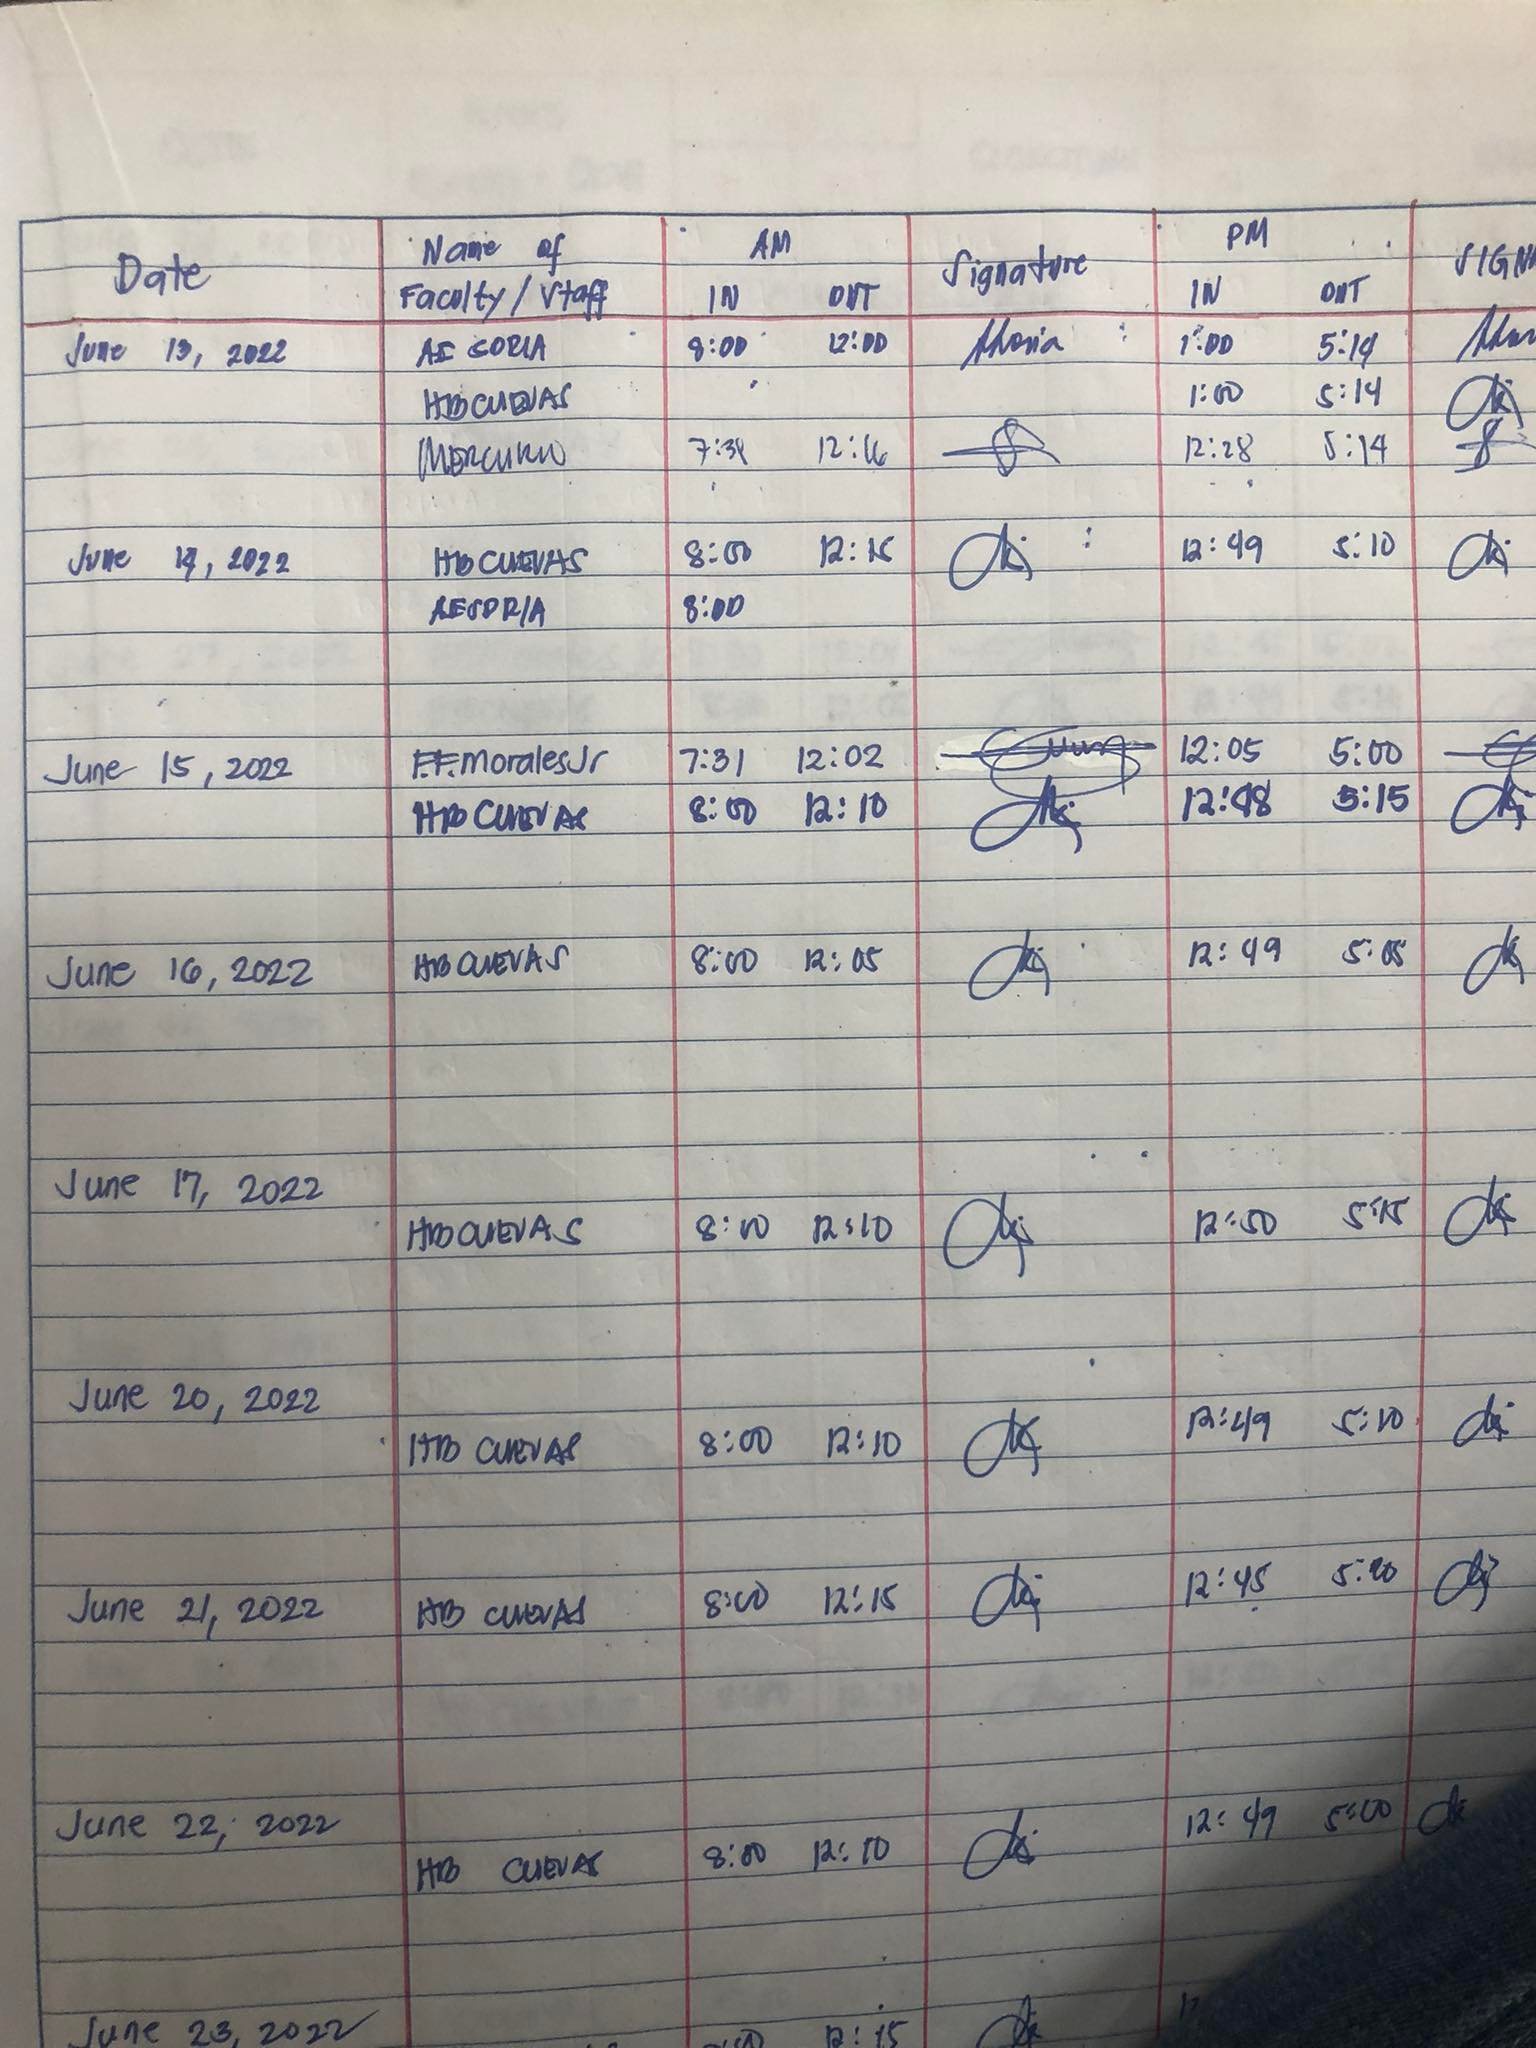 Date Name of Faculty / Staff AM IN OUT Signature PM IN OUT SIGN
June 13, 2022 AE SORIA 8:00 12:00 1:00 5:14
HB CUEVAS 1:00 5:14
MERCURIO 7:34 12:16 12:28 5:14
June 14, 2022 HB CUEVAS 8:00 12:15 12:49 5:10
AE SORIA 8:00
June 15, 2022 F.F. Morales Jr 7:31 12:02 12:05 5:00
HB CUEVAS 8:00 12:10 12:48 5:15
June 16, 2022 HB CUEVAS 8:00 12:05 12:49 5:05
June 17, 2022
HB CUEVAS 8:00 12:10 12:50 5:15
June 20, 2022
HB CUEVAS 8:00 12:10 12:49 5:10
June 21, 2022 HB CUEVAS 8:00 12:15 12:45 5:20
June 22, 2022
HB CUEVAS 8:00 12:10 12:49 5:00
June 23, 2022 12:15